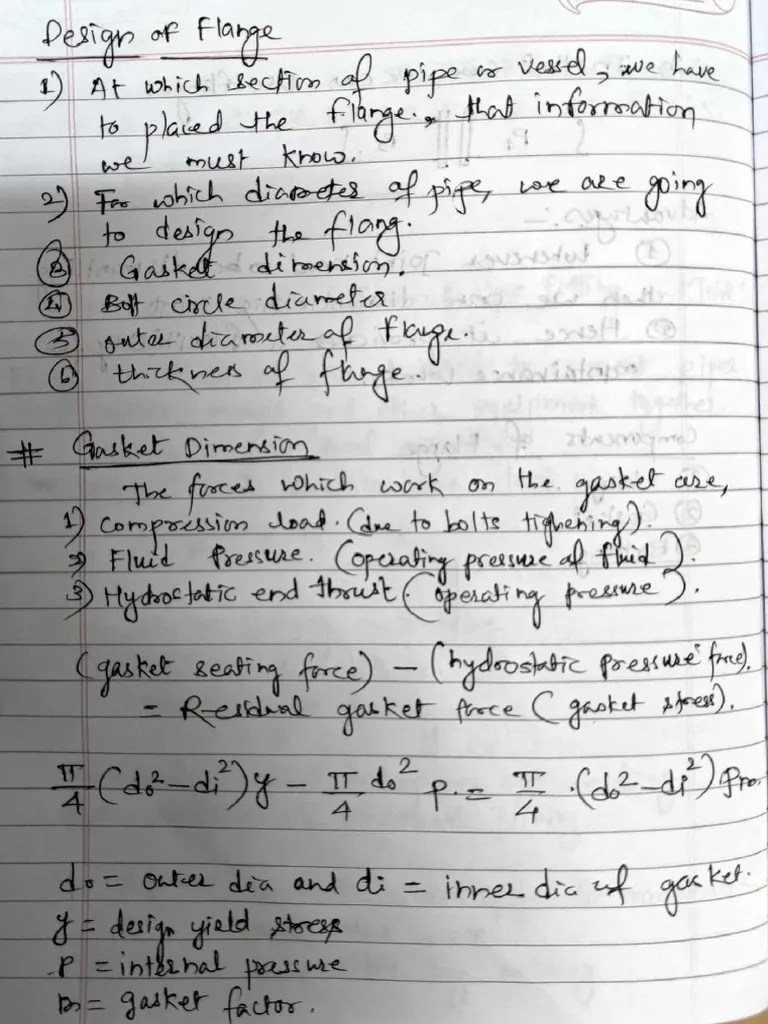 Design of Flange
1) At which section of pipe or vessel, we have
to placed the flange, that information
we must know.
2) For which diameter of pipe, we are going
to design the flang.
3) Gasket dimension.
4) Bolt circle diameter
5) outer diameter of flange.
6) thickness of flange.
# Gasket Dimension
The forces which work on the gasket are,
1) compression load. (due to bolts tighening).
2) Fluid Pressure. (operating pressure of fluid).
3) Hydrostatic end thrust (operating pressure).
(gasket seating force) - (hydrostatic pressure force).
= Residual gasket force (gasket stress).
π/4 (do² - di²) y - π/4 do² p. = π/4 · (do² - di²) pm.
do = outer dia and di = inner dia of gasket.
y = design yield stress
P = internal pressure
m = gasket factor.